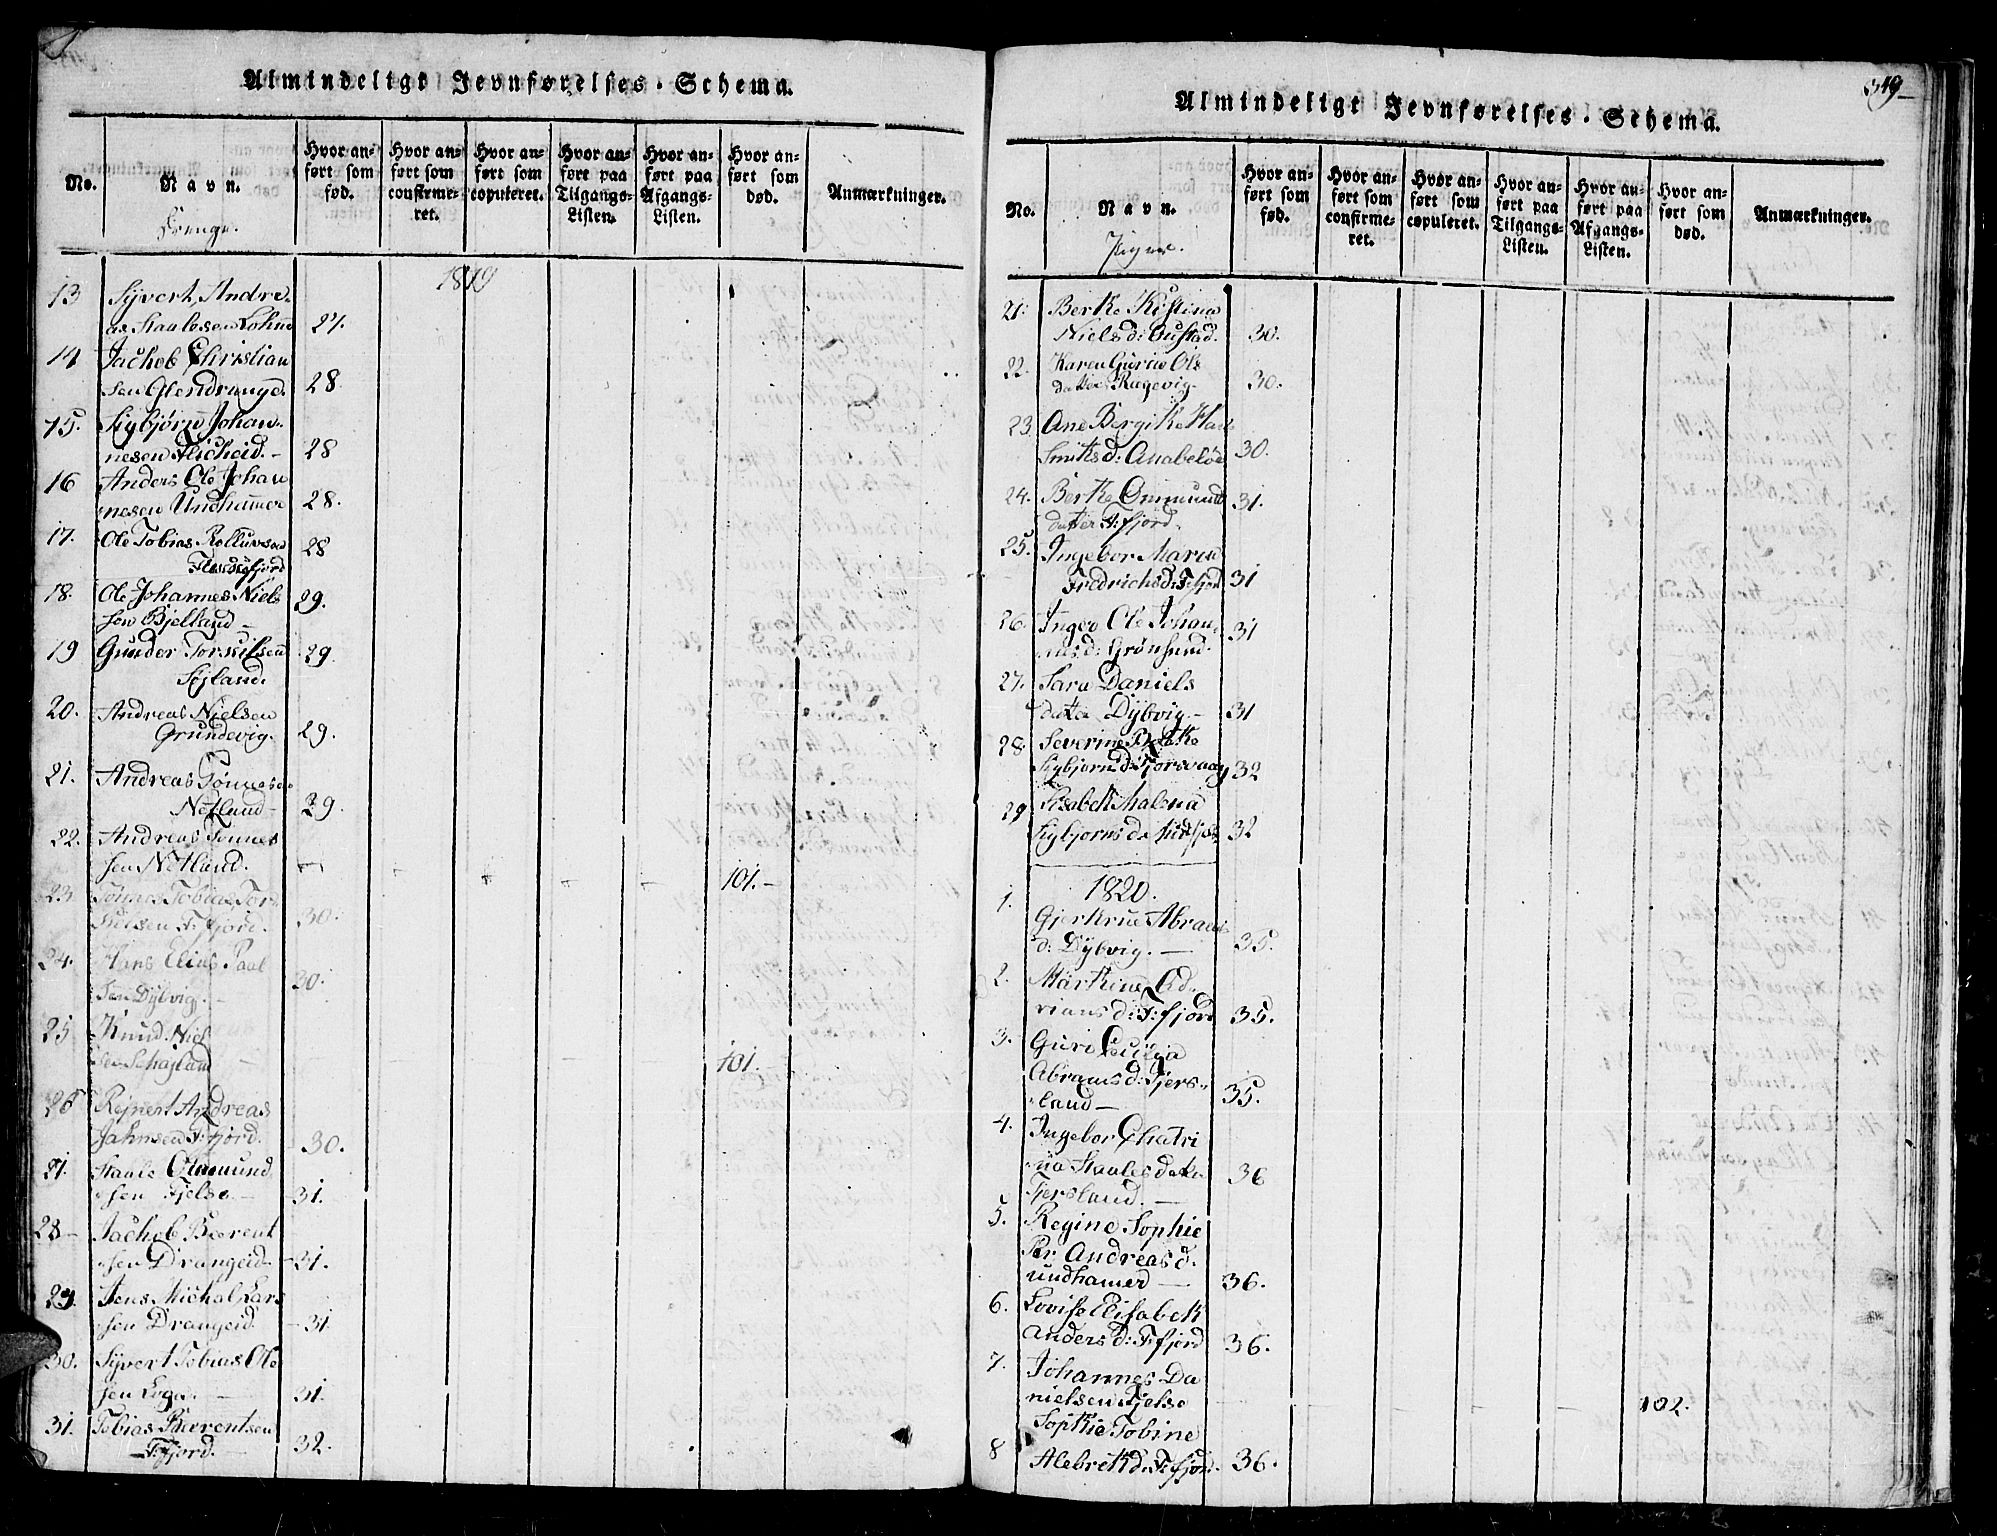 Almindeligt Jevnførelses-Schema.
No.
Navn.
Drenge.
Hvor anført som fød.
Hvor anført som confirmeret.
Hvor anført som copuleret.
Hvor anført paa Tilgangs-Listen.
Hvor anført paa Afgangs-Listen.
Hvor anført som død.
Anmærkninger.
1819
13 Syvert Andre-
as Staalesen Lohne 27.
14 Jachob Christian
sen Glendrange 28.
15. Sigbjørn Johan-
nesen 28
16 Anders Ole Johan
nesen Undhammer 28.
17. Ole Tobias Rolluvsen
Flekkefjord 28
18. Ole Johannes Niel-
sen Bjelland 29.
19 Gunder Torkilsen
Sejland. 29.
20. Andreas Nielsen
Grundevig. 29.
21. Andreas Tønnesen
Netland 29.
22. Andreas Tønnes
sen Netland. 101.
23 Tønnes Tobias Tor-
kilsen F:fjord. 30.
24. Hans Elias Paul
sen Dybvig. 30.
25 Knud Niel
sen Schajland 101.
26 Rejnert Andreas
Jahnsen F:fjord. 30.
27. Staale Ommund
sen Fjelse 31.
28 Jachob Beerent
sen Drangeid 31.
29. Jens Michal Lars
sen Drangeid. 31.
30. Syvert Tobias Ole
sen Loga. 31.
31. Tobias Beerentsen
F:fjord. 32.
349
Almindeligt Jevnførelses-Schema.
No.
Navn.
Piger.
Hvor anført som fød.
Hvor anført som confirmeret.
Hvor anført som copuleret.
Hvor anført paa Tilgangs-Listen.
Hvor anført paa Afgangs-Listen.
Hvor anført som død.
Anmærkninger.
21. Berte Kistina
Niels d: Gustad. 30.
22. Karen Gurine Ols
datter Ragevig. 30.
23. Ane Bergitte
d: Anabeløe 30.
24. Berte Ommund
datter F:fjord. 31.
25. Ingebor Marie
Fredrichsd: F:fjord 31
26 Inger Ole Johan-
nes d: Grønsund. 31
27. Sara Daniels
datter Dybvig. 31
28. Severine Beate
Sigbjørns d: Fjorsvaag 32
29 Lisabet Malena
Sigbjørns d. 32
1820.
1. Gjertrue Abrah
d: Dybvig. 35.
2. Martine Ad-
rians d: F:fjord 35.
3. Guri Cecilia
Abrams d: Tjers-
land 35.
4. Ingebor Chatri
na Staales datter
Tjersland. 36
5. Regine Sophie
Per Andreas d.
undhamer 36.
6. Lovise Elisabeth
Anders d: F:fjord 36.
7. Johannes Da
nielsen Fjelse 102.
8 Sophie Tobine
Alebret d: F:fjord. 36.